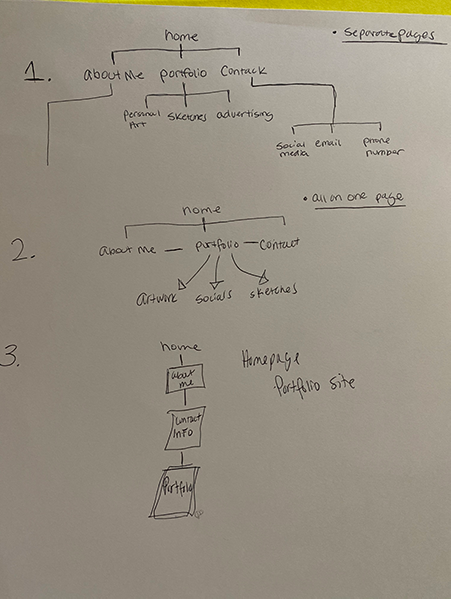 home
• Separate pages
1.
about Me portfolio Contack
Personal Art
sketches
advertising
social media
email
phone number
• all on one page
home
2.
about Me — portfolio — contact
artwork socials sketches
3.
home
about me
contact info
Portfolio
Homepage
Portfolio Site